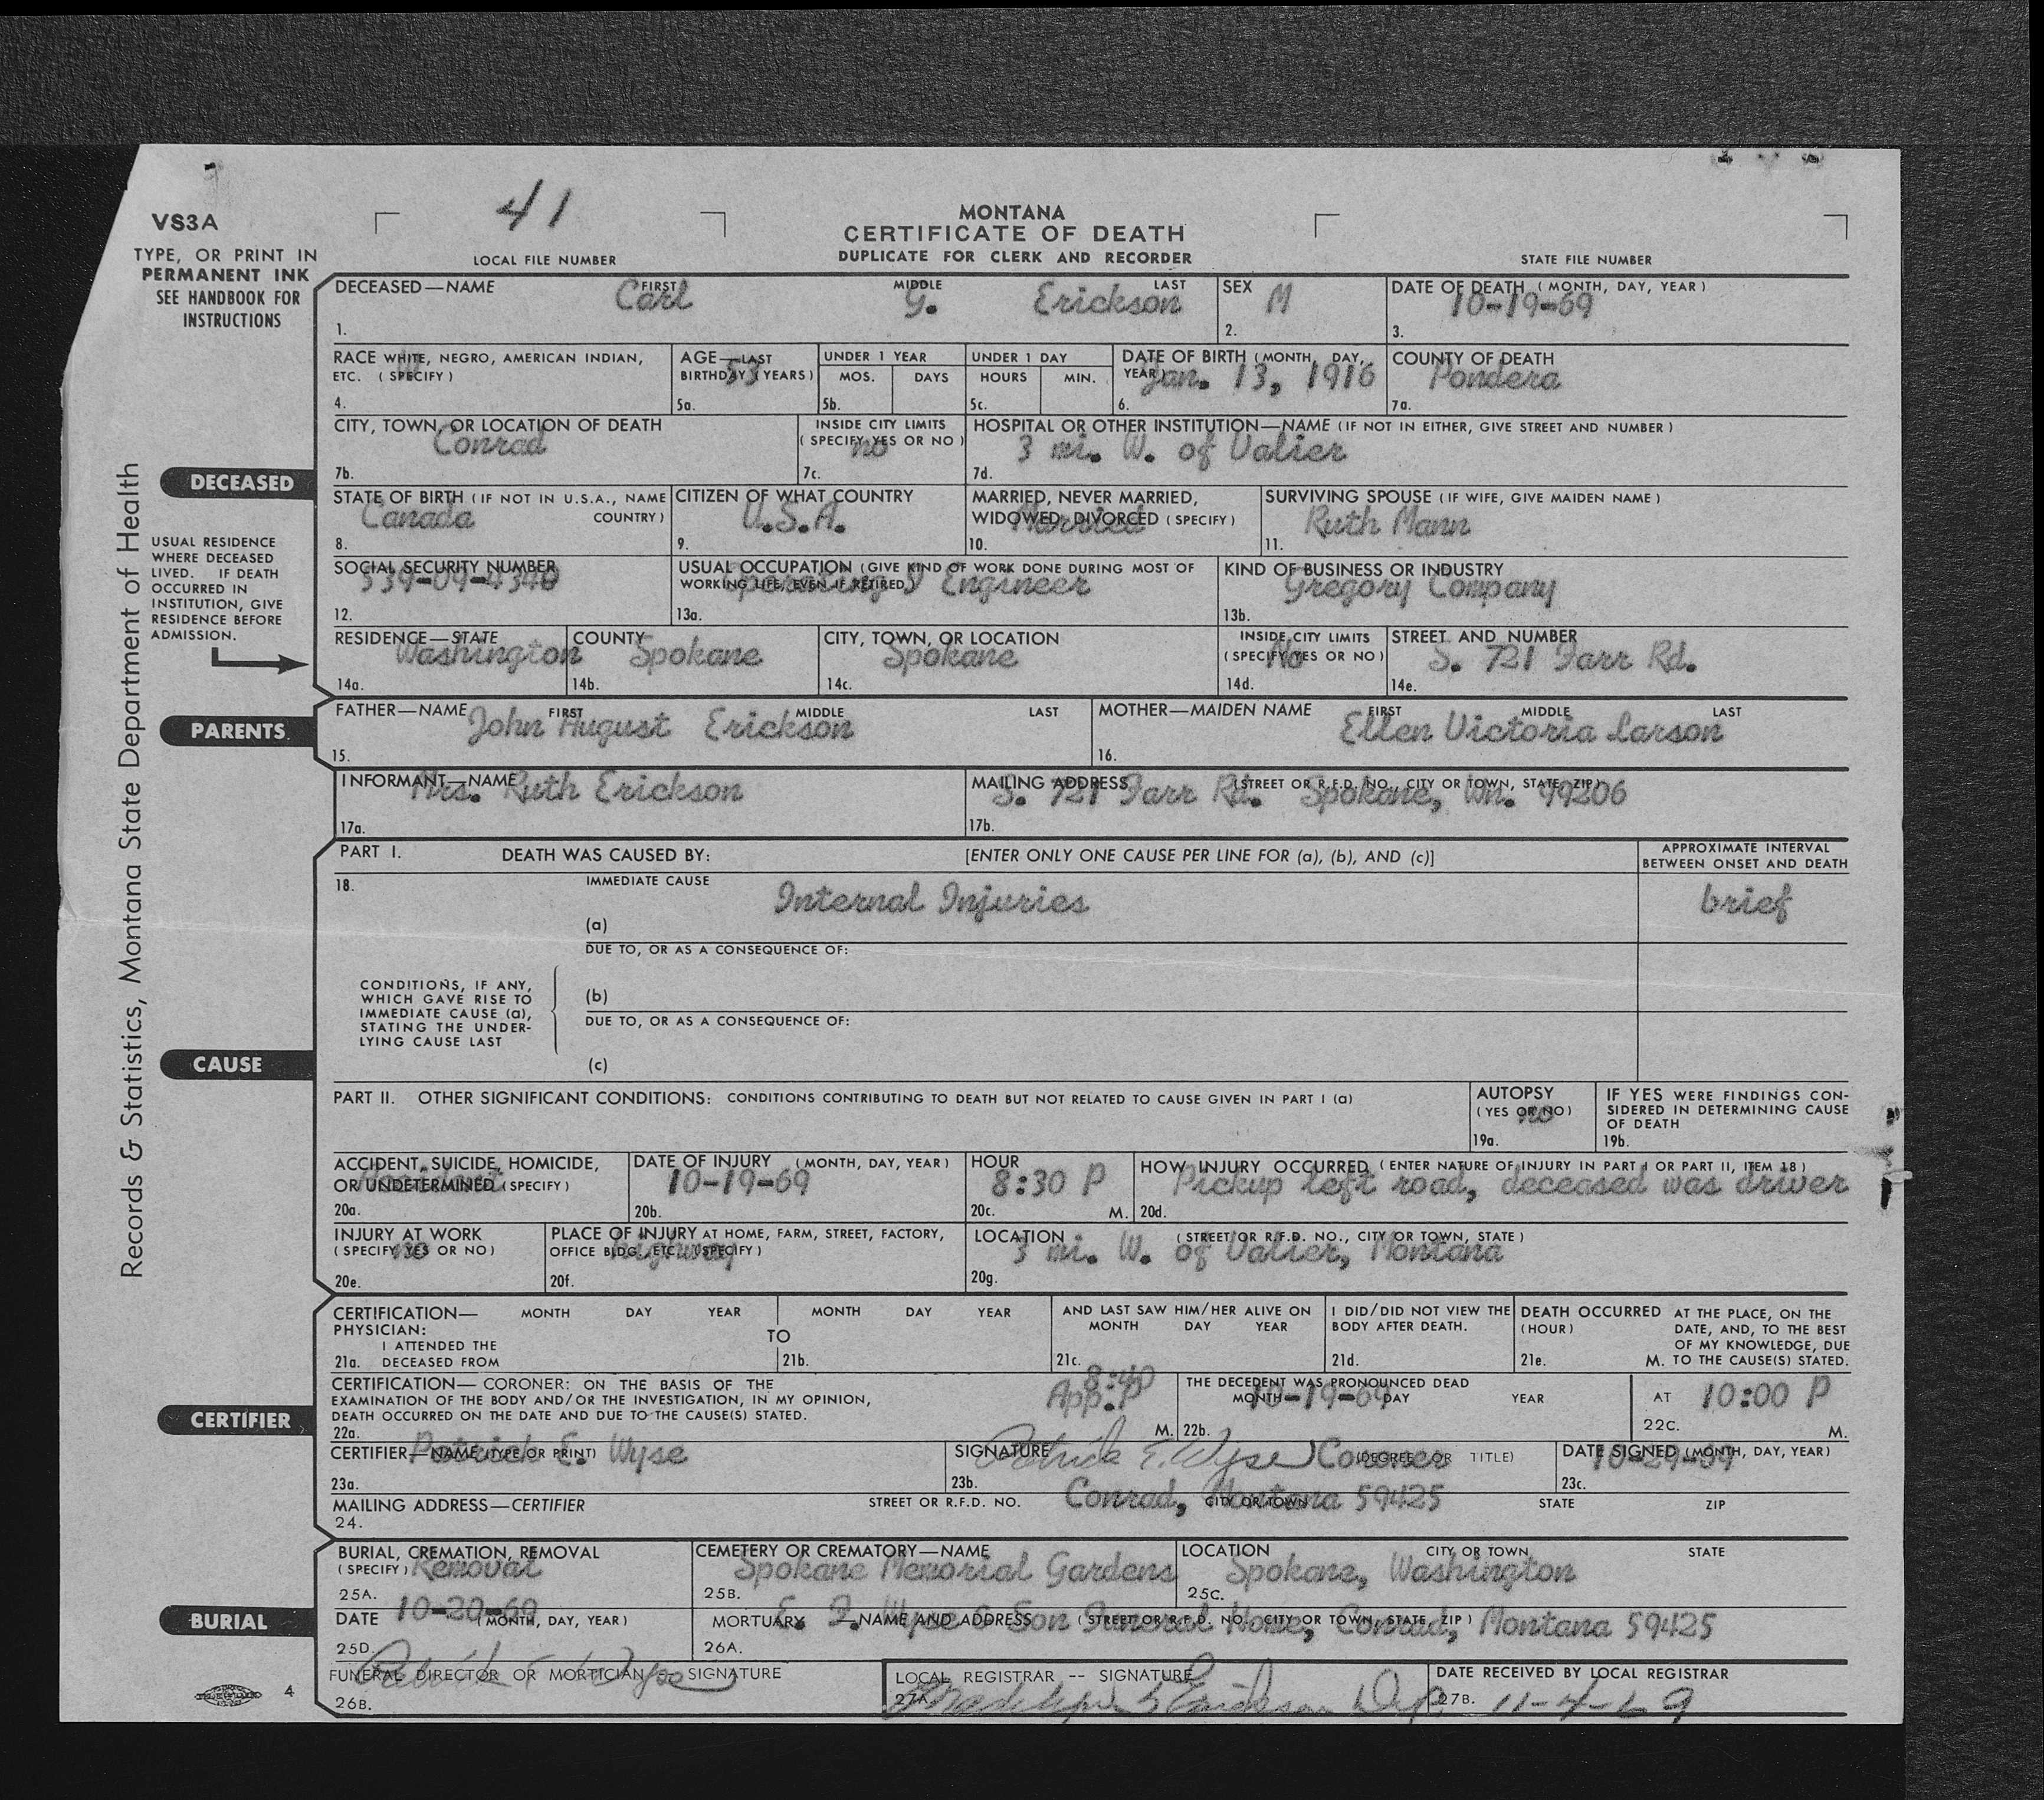 VS3A
41
MONTANA
TYPE, OR PRINT IN
PERMANENT INK
SEE HANDBOOK FOR
INSTRUCTIONS
CERTIFICATE OF DEATH
LOCAL FILE NUMBER
DUPLICATE FOR CLERK AND RECORDER
STATE FILE NUMBER
Records & Statistics, Montana State Department of Health
DECEASED—NAME FIRST MIDDLE LAST
1. Carl G. Erickson
SEX
2. M
DATE OF DEATH (MONTH, DAY, YEAR)
3. 10-19-69
RACE WHITE, NEGRO, AMERICAN INDIAN,
ETC. (SPECIFY)
4.
AGE—LAST
BIRTHDAY (YEARS)
5a. 53
UNDER 1 YEAR
MOS. DAYS
5b.
UNDER 1 DAY
HOURS MIN.
5c.
DATE OF BIRTH (MONTH, DAY,
YEAR)
6. Jan. 13, 1916
COUNTY OF DEATH
7a. Pondera
CITY, TOWN, OR LOCATION OF DEATH
7b. Conrad
INSIDE CITY LIMITS
(SPECIFY YES OR NO)
7c. no
HOSPITAL OR OTHER INSTITUTION—NAME (IF NOT IN EITHER, GIVE STREET AND NUMBER)
7d. 3 mi. W. of Valier
DECEASED
STATE OF BIRTH (IF NOT IN U.S.A., NAME
COUNTRY)
8. Canada
CITIZEN OF WHAT COUNTRY
9. U.S.A.
MARRIED, NEVER MARRIED,
WIDOWED, DIVORCED (SPECIFY)
10. Married
SURVIVING SPOUSE (IF WIFE, GIVE MAIDEN NAME)
11. Ruth Mann
USUAL RESIDENCE
WHERE DECEASED
LIVED. IF DEATH
OCCURRED IN
INSTITUTION, GIVE
RESIDENCE BEFORE
ADMISSION.
SOCIAL SECURITY NUMBER
12. 539-09-4340
USUAL OCCUPATION (GIVE KIND OF WORK DONE DURING MOST OF
WORKING LIFE, EVEN IF RETIRED)
13a. Operating Engineer
KIND OF BUSINESS OR INDUSTRY
13b. Gregory Company
RESIDENCE—STATE
14a. Washington
COUNTY
14b. Spokane
CITY, TOWN, OR LOCATION
14c. Spokane
INSIDE CITY LIMITS
(SPECIFY YES OR NO)
14d. No
STREET AND NUMBER
14e. S. 721 Farr Rd.
PARENTS
FATHER—NAME FIRST MIDDLE LAST
15. John August Erickson
MOTHER—MAIDEN NAME FIRST MIDDLE LAST
16. Ellen Victoria Larson
INFORMANT—NAME
17a. Mrs. Ruth Erickson
MAILING ADDRESS (STREET OR R.F.D. NO., CITY OR TOWN, STATE, ZIP)
17b. S. 721 Farr Rd. Spokane, Wn. 99206
PART I. DEATH WAS CAUSED BY: [ENTER ONLY ONE CAUSE PER LINE FOR (a), (b), AND (c)]
APPROXIMATE INTERVAL
BETWEEN ONSET AND DEATH
18. IMMEDIATE CAUSE
(a) Internal Injuries
brief
DUE TO, OR AS A CONSEQUENCE OF:
CONDITIONS, IF ANY,
WHICH GAVE RISE TO
IMMEDIATE CAUSE (a),
STATING THE UNDER-
LYING CAUSE LAST
(b)
DUE TO, OR AS A CONSEQUENCE OF:
(c)
CAUSE
PART II. OTHER SIGNIFICANT CONDITIONS: CONDITIONS CONTRIBUTING TO DEATH BUT NOT RELATED TO CAUSE GIVEN IN PART I (a)
AUTOPSY
(YES OR NO)
19a. no
IF YES WERE FINDINGS CON-
SIDERED IN DETERMINING CAUSE
OF DEATH
19b.
ACCIDENT, SUICIDE, HOMICIDE,
OR UNDETERMINED (SPECIFY)
20a. Accident
DATE OF INJURY (MONTH, DAY, YEAR)
20b. 10-19-69
HOUR
20c. 8:30 P M.
HOW INJURY OCCURRED (ENTER NATURE OF INJURY IN PART I OR PART II, ITEM 18)
20d. Pickup left road, deceased was driver
INJURY AT WORK
(SPECIFY YES OR NO)
20e. no
PLACE OF INJURY AT HOME, FARM, STREET, FACTORY,
OFFICE BLDG., ETC. (SPECIFY)
20f. highway
LOCATION (STREET OR R.F.D. NO., CITY OR TOWN, STATE)
20g. 3 mi. W. of Valier, Montana
CERTIFICATION—
PHYSICIAN:
I ATTENDED THE
21a. DECEASED FROM
MONTH DAY YEAR
TO
MONTH DAY YEAR
21b.
AND LAST SAW HIM/HER ALIVE ON
MONTH DAY YEAR
21c.
I DID/DID NOT VIEW THE
BODY AFTER DEATH.
21d.
DEATH OCCURRED
(HOUR)
21e. M.
AT THE PLACE, ON THE
DATE, AND, TO THE BEST
OF MY KNOWLEDGE, DUE
TO THE CAUSE(S) STATED.
CERTIFICATION—CORONER: ON THE BASIS OF THE
EXAMINATION OF THE BODY AND/OR THE INVESTIGATION, IN MY OPINION,
DEATH OCCURRED ON THE DATE AND DUE TO THE CAUSE(S) STATED.
22a.
8:40
App. P
M.
THE DECEDENT WAS PRONOUNCED DEAD
MONTH DAY YEAR
22b. 10-19-69
AT 10:00 P
22c. M.
CERTIFIER
CERTIFIER—NAME (TYPE OR PRINT)
23a. Patrick E. Wyse
SIGNATURE (DEGREE OR TITLE)
23b. Patrick E. Wyse Coroner
DATE SIGNED (MONTH, DAY, YEAR)
23c. 10-29-69
MAILING ADDRESS—CERTIFIER STREET OR R.F.D. NO. CITY OR TOWN STATE ZIP
24. Conrad, Montana 59425
BURIAL, CREMATION, REMOVAL
(SPECIFY)
25A. Removal
CEMETERY OR CREMATORY—NAME
25B. Spokane Memorial Gardens
LOCATION CITY OR TOWN STATE
25C. Spokane, Washington
BURIAL
DATE (MONTH, DAY, YEAR)
25D. 10-20-69
MORTUARY—NAME AND ADDRESS (STREET OR R.F.D. NO., CITY OR TOWN, STATE, ZIP)
26A. E. F. Wyse & Son Funeral Home, Conrad, Montana 59425
FUNERAL DIRECTOR OR MORTICIAN — SIGNATURE
26B. Patrick E. Wyse
LOCAL REGISTRAR -- SIGNATURE
27A. Erickson Dep.
DATE RECEIVED BY LOCAL REGISTRAR
27B. 11-4-69
4